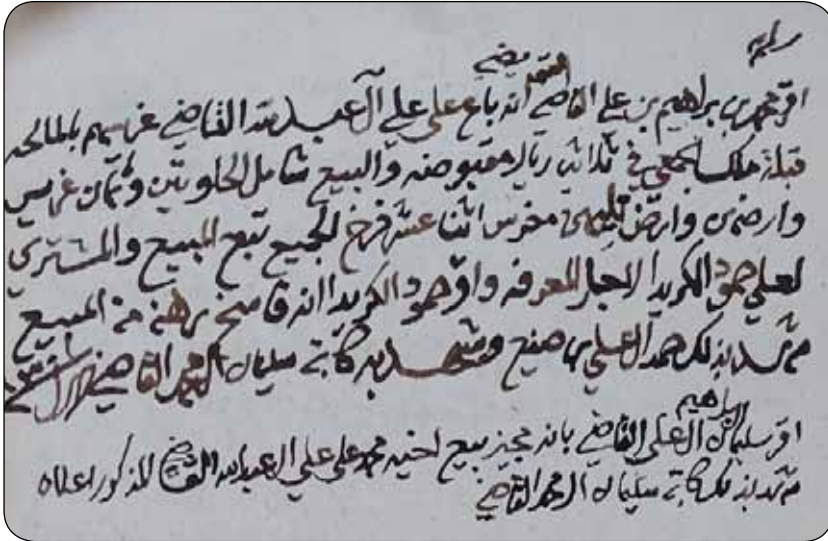 اقر محمد بن براهيم بن علي القاضي انه باع على علي آل عبد الله القاضي غرسهم بالمالحه
قبلة ملك في ثلاثين ريال مقبوضه والبيع شامل الحلوتين وثمان غريس
وارضهن وارض مغرس اثنا عشر فرخ الجميع تبع المبيع والمشتري
لعلي حمود الكريدا المعرفه واقر حمود الكريدا انه فاسخ رهنه من المبيع
شهد بذلك حمد آل علي بن صنيع وشهد به كاتبه سليمان آل محمد القاضي
اقر سليمان البراهيم آل علي القاضي بانه مجيز بيع اخيه محمد على علي آل عبد الله القاضي المذكور اعلاه
شهد بذلك كاتبه سليمان آل محمد القاضي